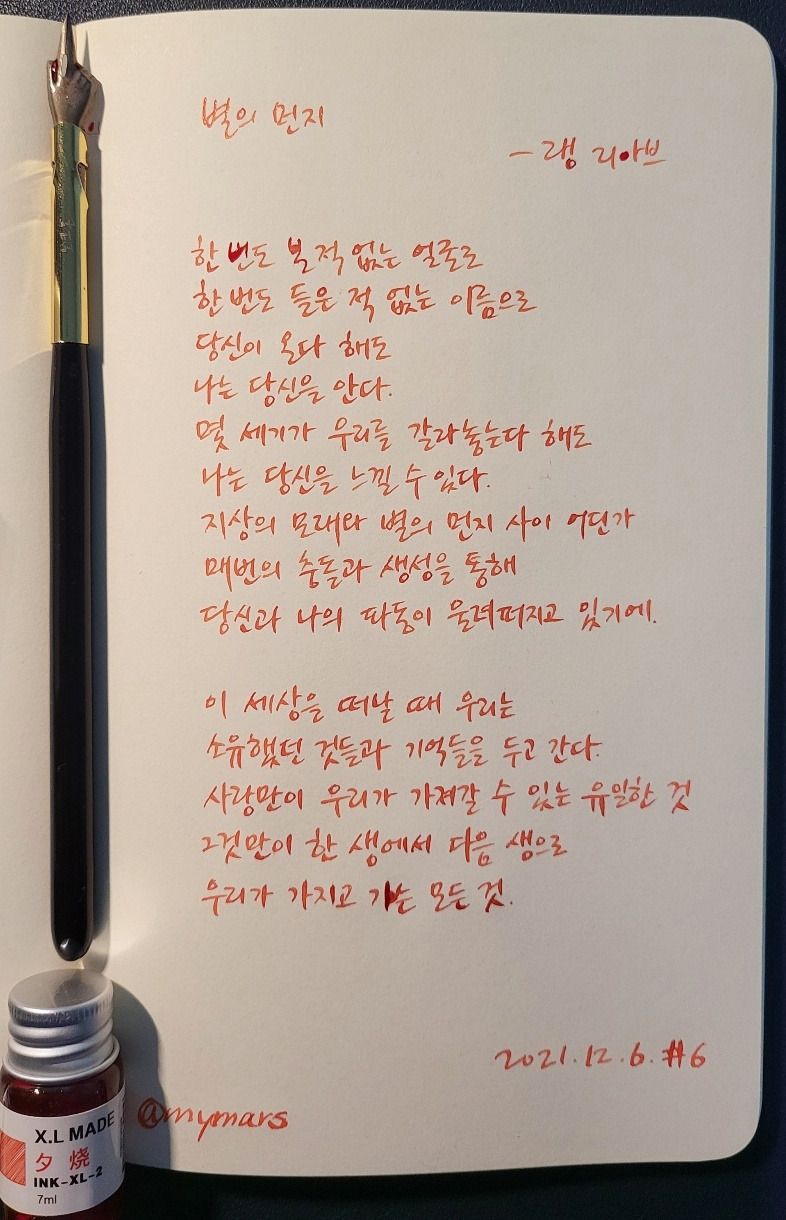 별의 먼지
- 랭 리아브
한 번도 본 적 없는 얼굴로
한 번도 들은 적 없는 이름으로
당신이 온다 해도
나는 당신을 안다.
몇 세기가 우리를 갈라놓는다 해도
나는 당신을 느낄 수 있다.
지상의 모래와 별의 먼지 사이 어딘가
매번의 충돌과 생성을 통해
당신과 나의 파동이 울려퍼지고 있기에.
이 세상을 떠날 때 우리는
소유했던 것들과 기억들을 두고 간다.
사랑만이 우리가 가져갈 수 있는 유일한 것
그것만이 한 생에서 다음 생으로
우리가 가지고 가는 모든 것.
2021.12.6.#6
@mymars
X.L MADE
夕 烧
INK-XL-2
7ml